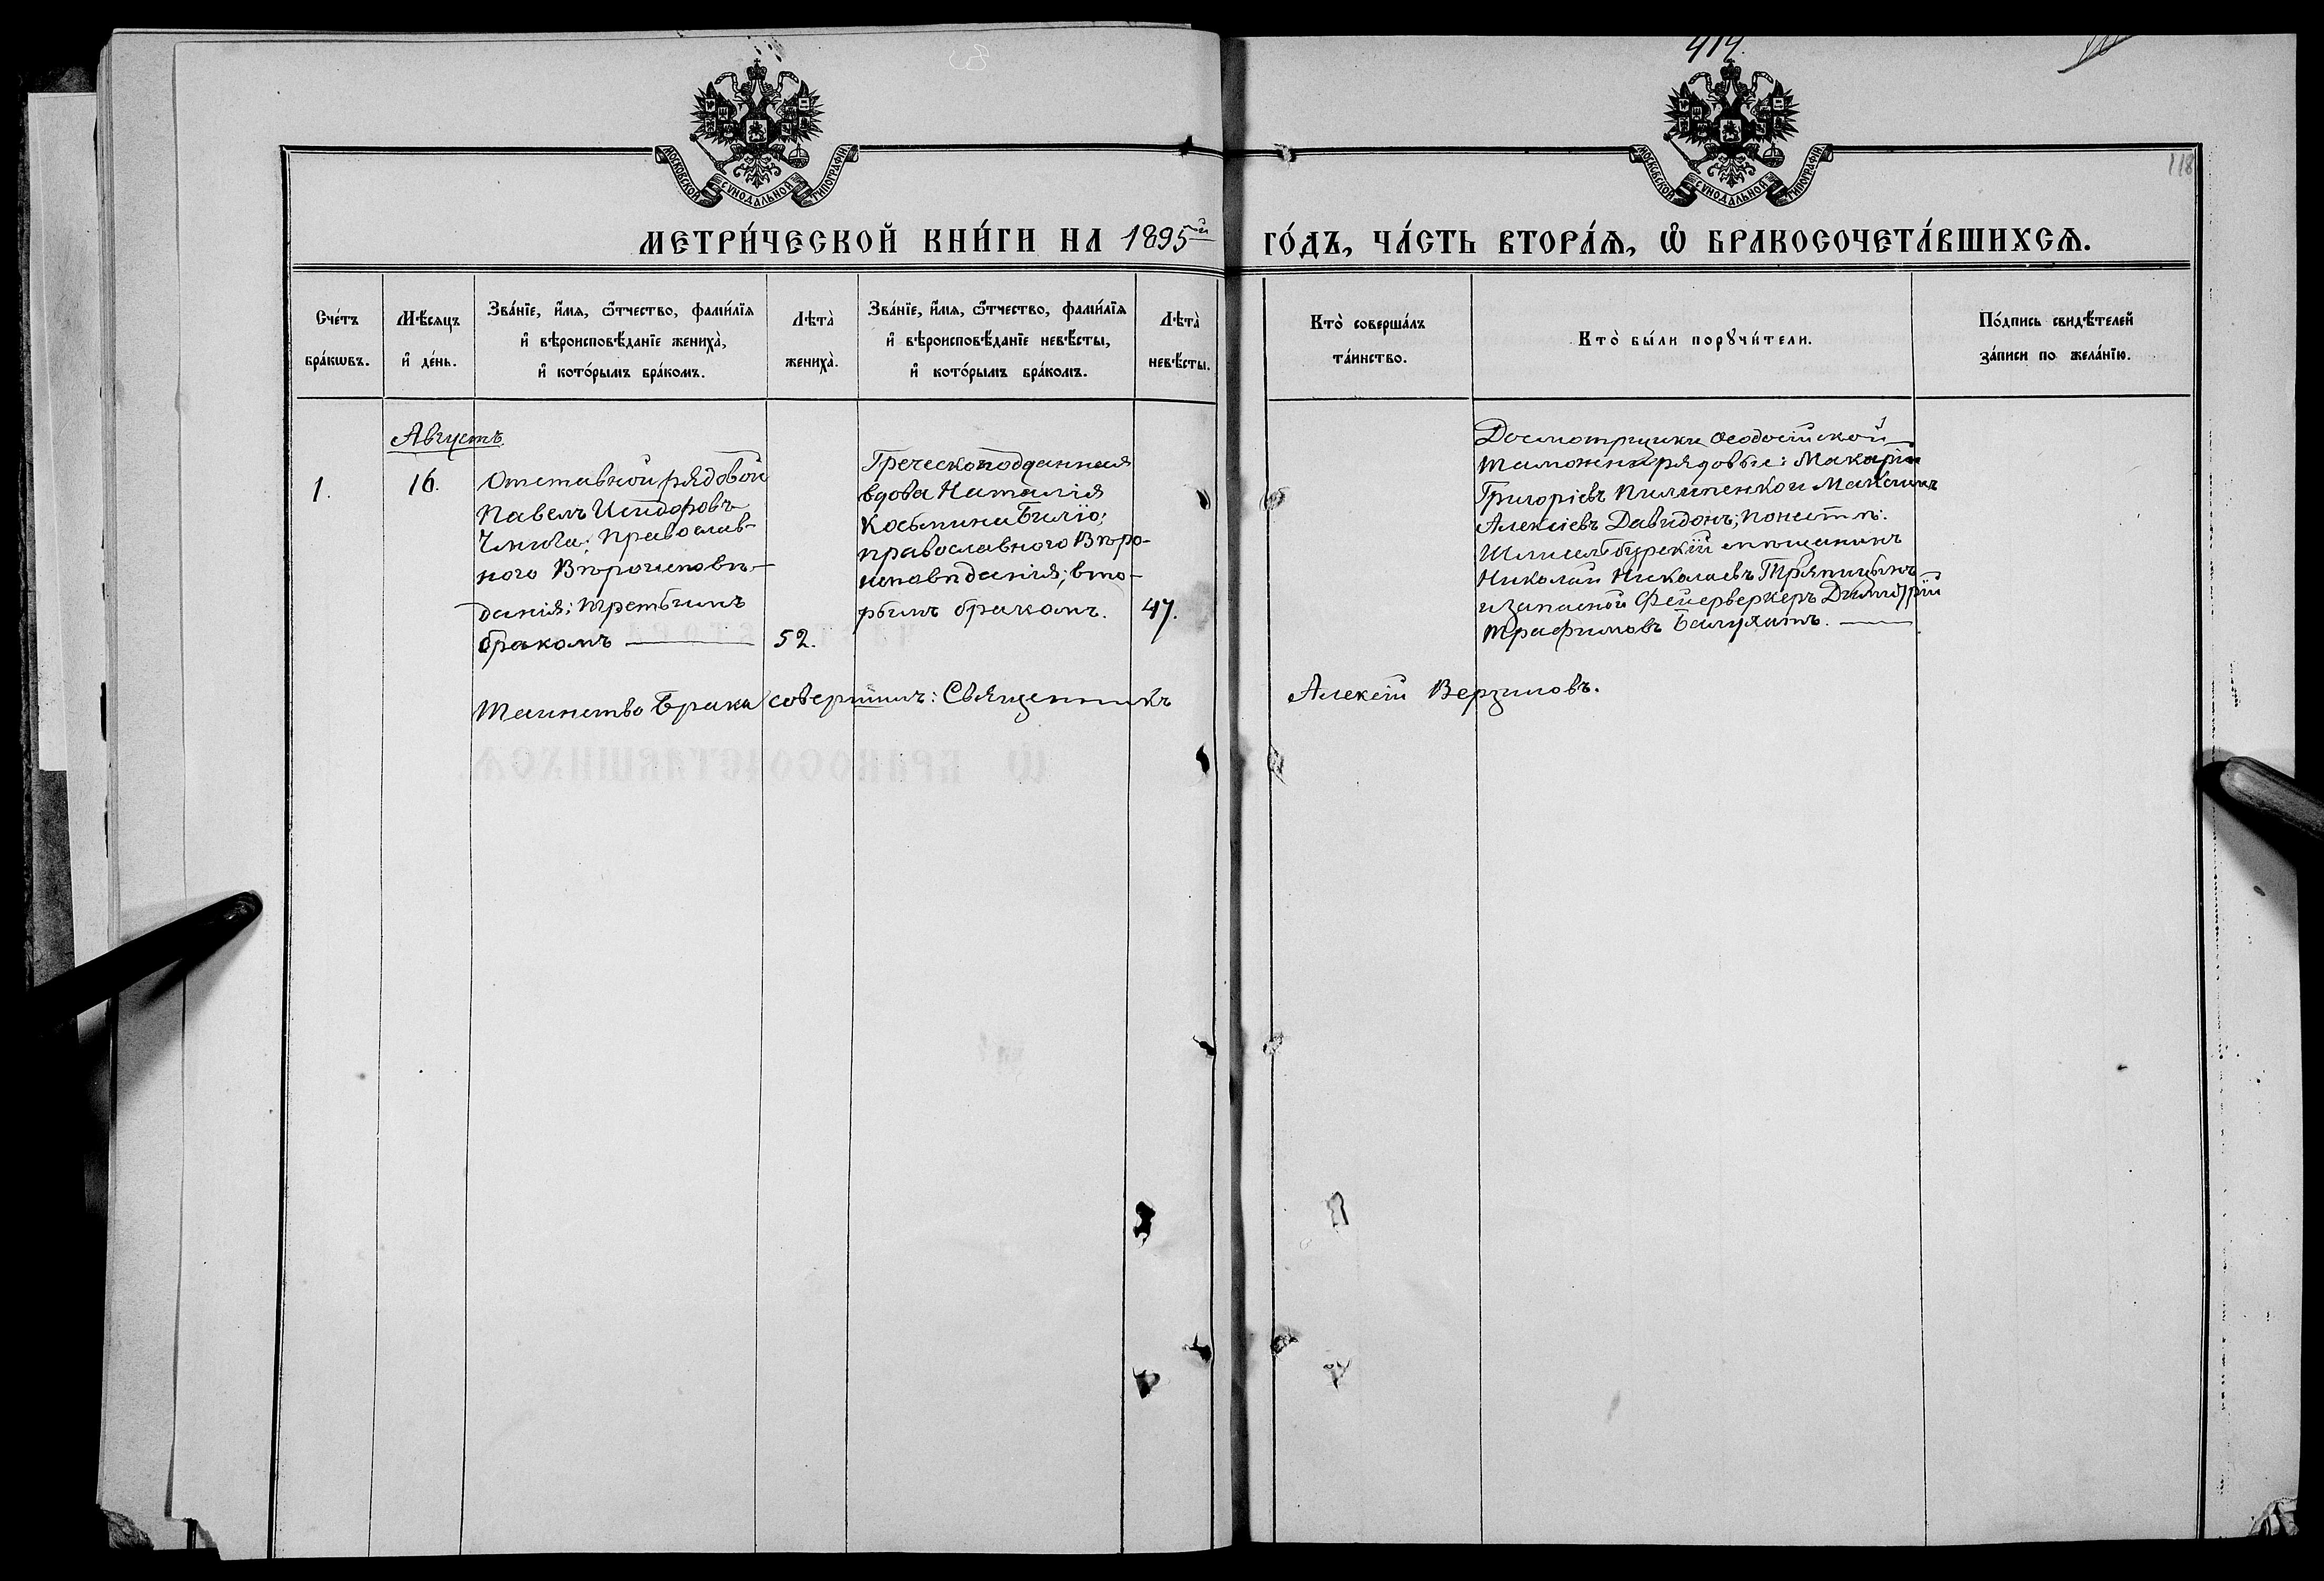 414.
118
МОСКОВСКОЙ СѴНОДАЛЬНОЙ ТИПОГРАФІИ
МОСКОВСКОЙ СѴНОДАЛЬНОЙ ТИПОГРАФІИ
МЕТРИ́ЧЕСКОЙ КНИ́ГИ НА 1895й ГО́ДЪ, ЧА́СТЬ ВТОРА́Ѧ, Ѽ БРАКОСОЧЕТА́ВШИХСѦ.
Сче́тъ
бра́кѡвъ.
Мѣ́сяцъ
и҆ де́нь.
Зва́нїе, и҆́мѧ, ѻ҆́тчество, фами́лїѧ
и҆ вѣроисповѣ́данїе жениха̀,
и҆ кото́рымъ бра́комъ.
Лѣта̀
жениха̀.
Зва́нїе, и҆́мѧ, ѻ҆́тчество, фами́лїѧ
и҆ вѣроисповѣ́данїе невѣ́сты,
и҆ кото́рымъ бра́комъ.
Лѣта̀
невѣ́сты.
Кто̀ соверша́лъ
та́инство.
Кто̀ бы́ли порꙋчи́тели.
По́дпись свидѣ́телей
за́писи по жела́нїю.
Августъ.
1.
16.
Отставной рядовой
Павелъ Исидоровъ
православ-
ного Вѣроисповѣ-
данія; третьимъ
бракомъ
52.
Греческоподданная
вдова Наталія
Косьмина Билїо;
православного Вѣро-
исповѣданія; вто-
рымъ бракомъ.
47.
Досмотрщики Ѳеодосійской
таможни рядовые: Макарій
Григоріевъ Пилипенко и Максимъ
Алексіевъ Давидонъ; по невѣстѣ:
Шлиссельбурскій мѣщанинъ
Николай Николаевъ Тряпицынъ
и запасной Фейерверкеръ Димитрій
Трафимовъ
Таинство Брака совершилъ: Священникъ Алексій Верзиловъ.